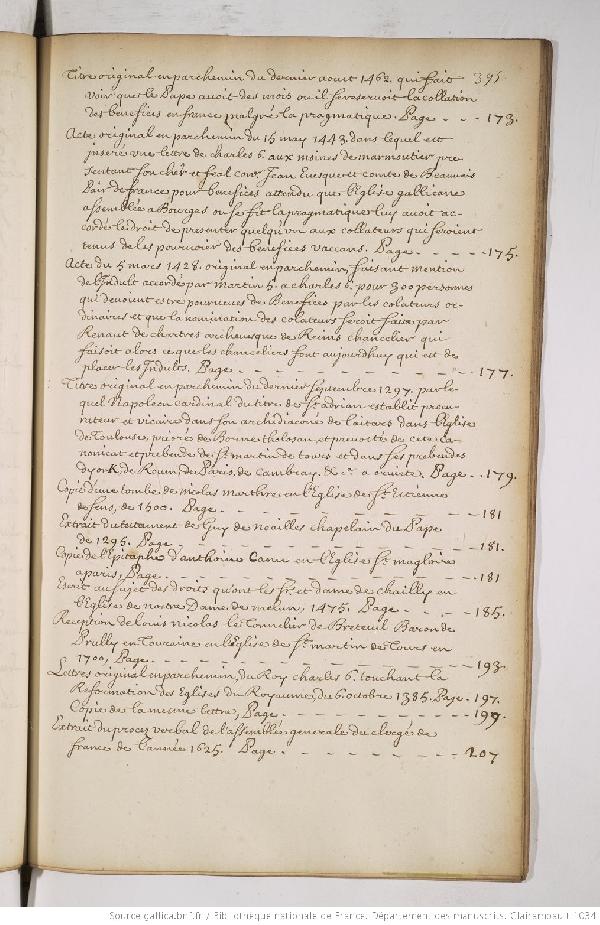 395.
Titre original en parchemin du dernier aoust 1462. qui fait
voir que le Pape avoit des mois ou il se reservoit la collation
des benefices en france malgré la pragmatique. Page - - - 173.
Acte original en parchemin du 15 may 1443. dans lequel est
inseré une lettre de charles 6. aux moines de marmoutier pre
sentant son cher et feal conr. Jean Evesque et comte de Beauvais
Pair de france pour benefices attendu que l'Eglise gallicane
assemblée a Bourges ou se fit la pragmatique luy avoit ac-
cordé le droit de presenter quelqu'un aux collateurs qui seroient
tenus de les pourvoir des benefices vaccans. Page - - - - - 175.
Acte du 5 mars 1428. original en parchemin, faisant mention
de l'Indult accordé par martin 5. a charles 6. pour 300 personnes
qui devoient estre pourveues de Benefices par les colateurs or-
dinaires et que la nomination des colateurs seroit faite par
Renaut de chartres archevesque de Reims chancelier qui
faisoit alors ce que les chanceliers font aujourdhuy qui est de
placer les Indults. Page - - - - - - - - - - 177.
Titre original en parchemin du dernier septembre 1297. par le-
quel Napoleon cardinal du titre de St. adrian establit procu-
reur et vicaire dans son archidiaconé de dans l'Eglise
de Toulouse, prieuré de Bonne tholosan, et prevosté de ca-
nonicat et prebende de St. martin de tours et dans ses prebendes
d'york, de Rouen, de Paris, de Cambray, & ca. Page - - 179.
Copie d'une tombe de nicolas marthre en l'Eglise de St. Estienne
de sens, de 1500. Page - - - - - - - - - - 181
Extrait du testament de Guy de noailles chapelain du Pape
de 1295. Page - - - - - - - - - - 181.
Copie de l'Epitaphe d'anthoine Canu en l'Eglise St. magloire
a paris, Page - - - - - - - - - - 181
Escrit au sujet des droits qu'ont les sr. et dame de chailly en
l'Eglise de nostre Dame de melun, 1475. Page - - - - 185.
Reception de louis nicolas le Tonnelier de Breteuil Baron de
Preully en Touraine en l'Eglise de St. martin de Tours en
1700, Page - - - - - - - - - - 193.
Lettres original en parchemin, du Roy charles 6. touchant la
Reformation des Eglises du Royaume, du 6. octobre 1385. Page - 197.
Copie de la mesme lettre, Page - - - - - - - - 199.
Extrait du procez verbal de l'assemblée generale du clergé de
france de l'année 1625. Page - - - - - - - - 207
Source gallica.bnf.fr / Bibliothèque nationale de France. Département des manuscrits. Clairambault 1034